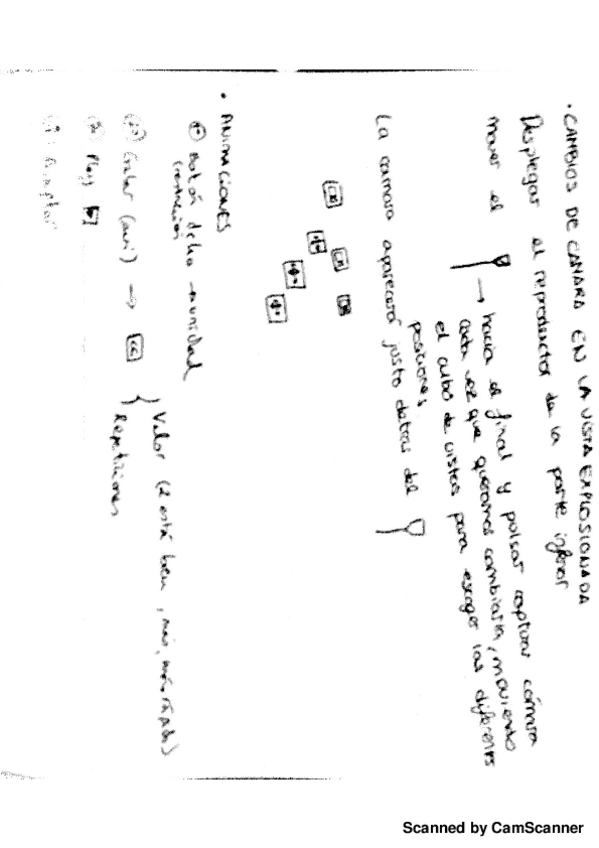 • CAMBIOS DE CÁMARA EN LA VISTA EXPLOSIONADA
Desplegar el reproductor de la parte inferior
mover el → hacia el final y pulsar captura cámara
cada vez que queramos cambiarla, moviendo
el cubo de vistas para escoger las diferentes
posiciones.
La camara aparecerá justo detras del
• ANIMACIONES
① Botón dcho unidad
Grabar (avi) → { Valor (2 está bien, más, más rápido)
Repeticiones
Play
Aceptar
Scanned by CamScanner